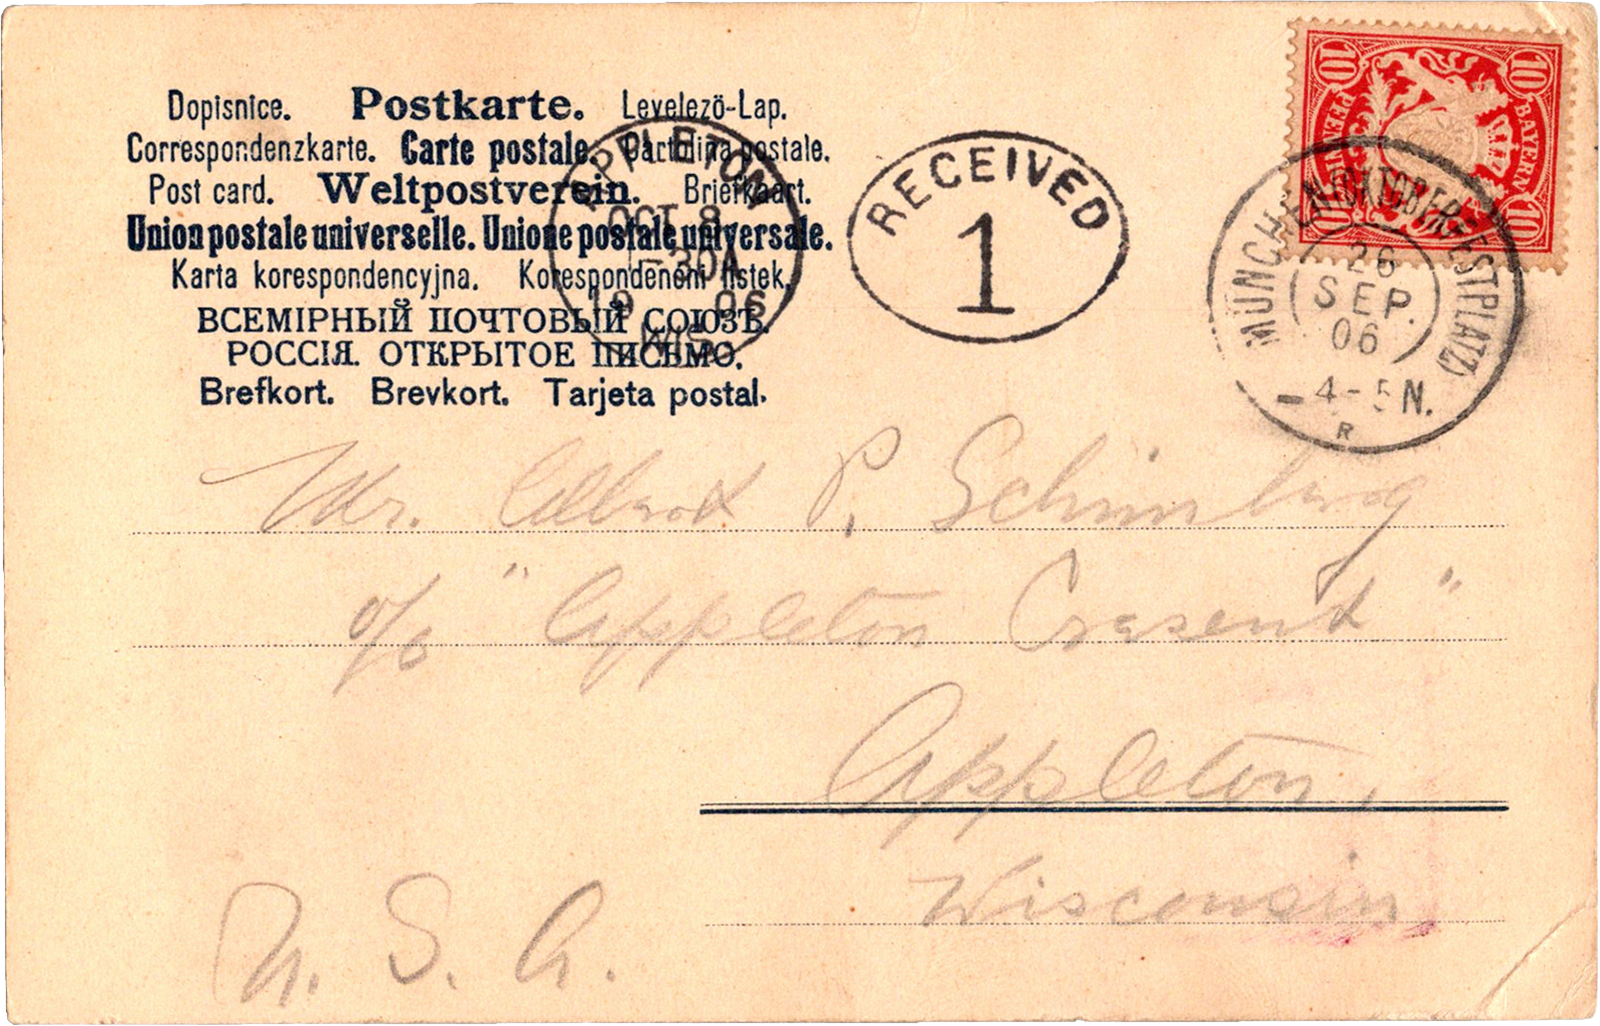 Dopisnice. Postkarte. Levelezö-Lap.
Correspondenzkarte. Carte postale. Cartolina postale.
Post card. Weltpostverein. Briefkaart.
Union postale universelle. Unione postale universale.
Karta korespondencyjna. Korespondenční lístek.
ВСЕМІРНЫЙ ПОЧТОВЫЙ СОЮЗЪ.
РОССІЯ. ОТКРЫТОЕ ПИСЬМО.
Brefkort. Brevkort. Tarjeta postal.
APPLETON
OCT 8
1-30A
19 06
WIS.
RECEIVED
1
10 10
PFENNIG BAYERN
10 10
MÜNCHEN (OKTOBER-FESTPLATZ)
26
SEP.
06
4-5 N.
R
Mr. Albert P.
c/o "Appleton Cresent"
Appleton,
Wisconsin
U. S. A.